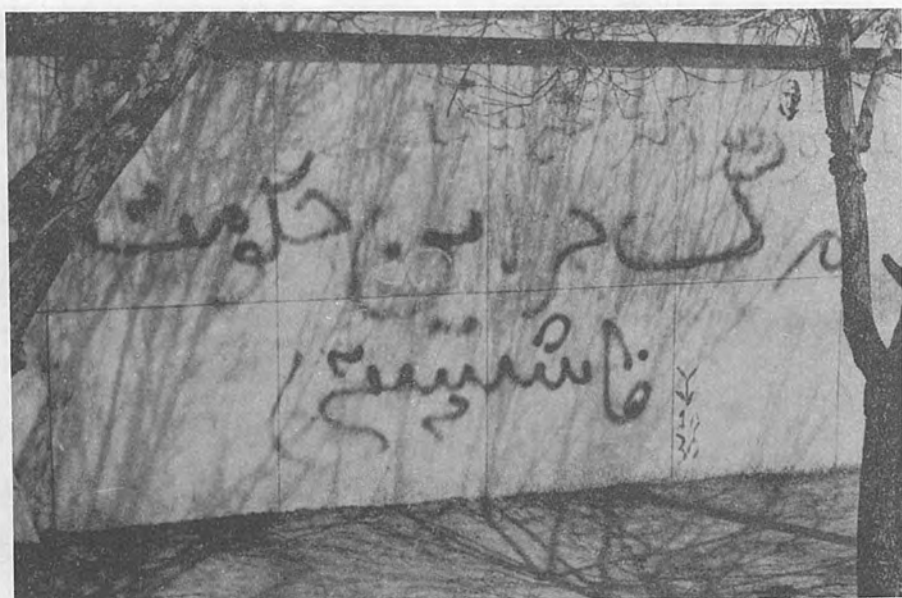 مرگ بر این حکومت
فاشیستی